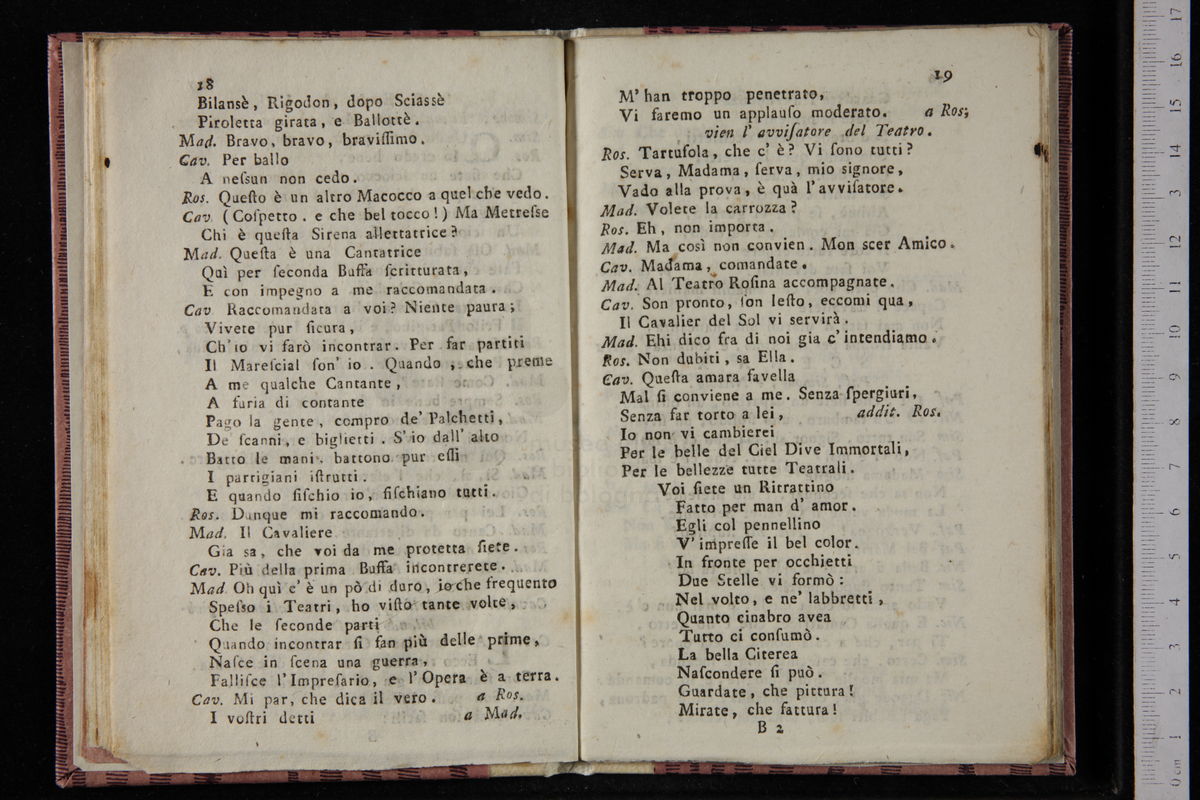 18
Bilansè, Rigodon, dopo Sciassè
Piroletta girata, e Ballottè.
Mad. Bravo, bravo, braviſſimo.
Cav. Per ballo
A neſsun non cedo.
Ros. Queſto è un altro Macocco a quel che vedo.
Cav. (Coſpetto. e che bel tocco!) Ma Metreſse
Chi è queſta Sirena allettatrice?
Mad. Queſta è una Cantatrice
Quì per ſeconda Buffa ſcritturata,
E con impegno a me raccomandata.
Cav Raccomandata a voi? Niente paura;
Vivete pur ſicura,
Ch'io vi farò incontrar. Per far partiti
Il Mareſcial ſon' io. Quando, che preme
A me qualche Cantante,
A furia di contante
Pago la gente, compro de' Palchetti,
De' ſcanni, e biglietti. S' io dall' alto
Batto le mani. battono pur eſſi
I partigiani iſtrutti.
E quando fiſchio io, fiſchiano tutti.
Ros. Dunque mi raccomando.
Mad. Il Cavaliere
Gia sa, che voi da me protetta ſiete.
Cav. Più della prima Buffa incontrerete.
Mad. Oh quì c' è un pò di duro, io che frequento
Speſso i Teatri, ho viſto tante volte,
Che le ſeconde parti
Quando incontrar ſi fan più delle prime,
Naſce in ſcena una guerra,
Falliſce l'Impreſario, e l'Opera è a terra.
Cav. Mi par, che dica il vero. a Ros.
I voſtri detti a Mad.
19
M' han troppo penetrato,
Vi faremo un applauſo moderato. a Ros;
vien l' avviſatore del Teatro.
Ros. Tartufola, che c' è? Vi ſono tutti?
Serva, Madama, ſerva, mio signore,
Vado alla prova, è quà l'avviſatore.
Mad. Volete la carrozza?
Ros. Eh, non importa.
Mad. Ma così non convien. Mon scer Amico.
Cav. Madama, comandate.
Mad. Al Teatro Roſina accompagnate.
Cav. Son pronto, ſon leſto, eccomi qua,
Il Cavalier del Sol vi servirà.
Mad. Ehi dico fra di noi gia c' intendiamo.
Ros. Non dubiti, sa Ella.
Cav. Queſta amara favella
Mal ſi conviene a me. Senza ſpergiuri,
Senza far torto a lei, addit. Ros.
Io non vi cambierei
Per le belle del Ciel Dive Immortali,
Per le bellezze tutte Teatrali.
Voi ſiete un Ritrattino
Fatto per man d' amor.
Egli col pennellino
V' impreſſe il bel color.
In fronte per occhietti
Due Stelle vi formò:
Nel volto, e ne' labbretti,
Quanto cinabro avea
Tutto ci conſumò.
La bella Citerea
Naſcondere ſi può.
Guardate, che pittura!
Mirate, che fattura!
B 2